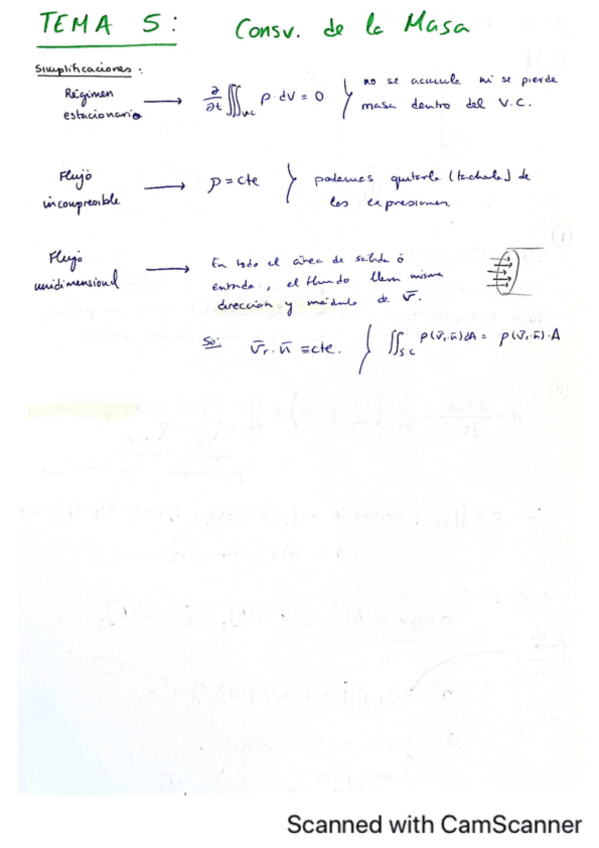 TEMA 5: Consv. de la Masa
Simplificaciones:
Régimen estacionario → ∂/∂t ∭v.c ρ·dV = 0 } no se acumula ni se pierde
masa dentro del V.C.
Flujo incompresible → ρ = cte } podemos quitarla (tacharla) de
las expresiones.
Flujo unidimensional → En todo el área de salida ó
entrada, el fluido lleva misma
dirección y módulo de v̄.
So: v̄r · n̄ = cte. } ∬s.c ρ(v̄r·n̄)dA = ρ(v̄r·n̄)·A
Scanned with CamScanner